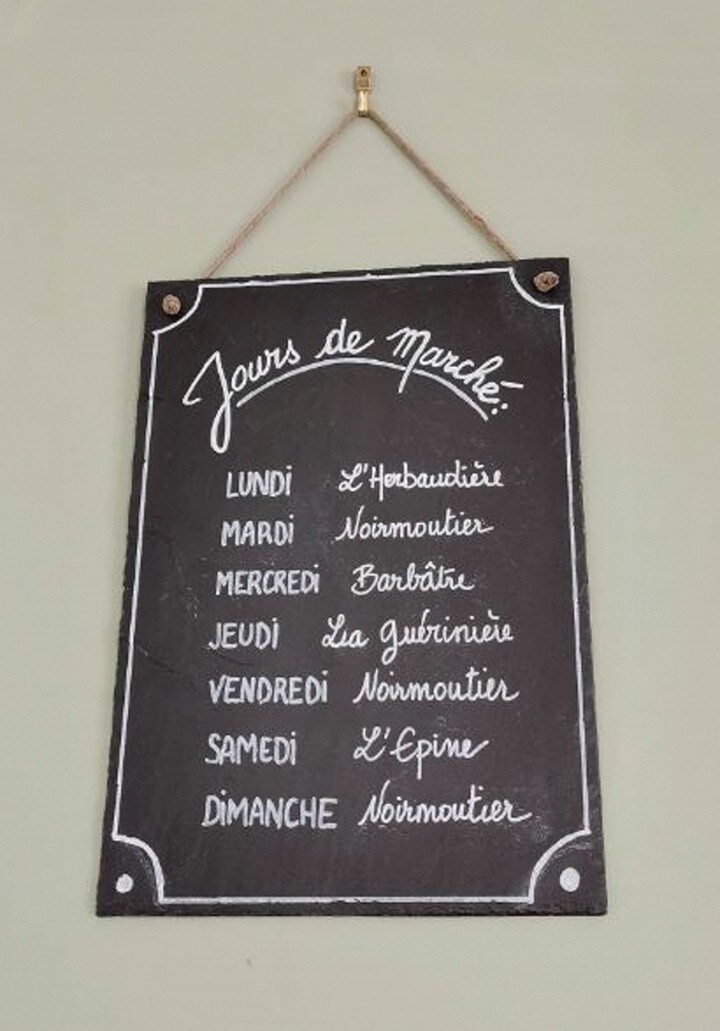 Jours de Marché:
LUNDi L'Herbaudière
MARDi Noirmoutier
MERCREDi Barbâtre
JEUDi La Guérinière
VENDREDi Noirmoutier
SAMEDi L'Epine
DiMANCHE Noirmoutier